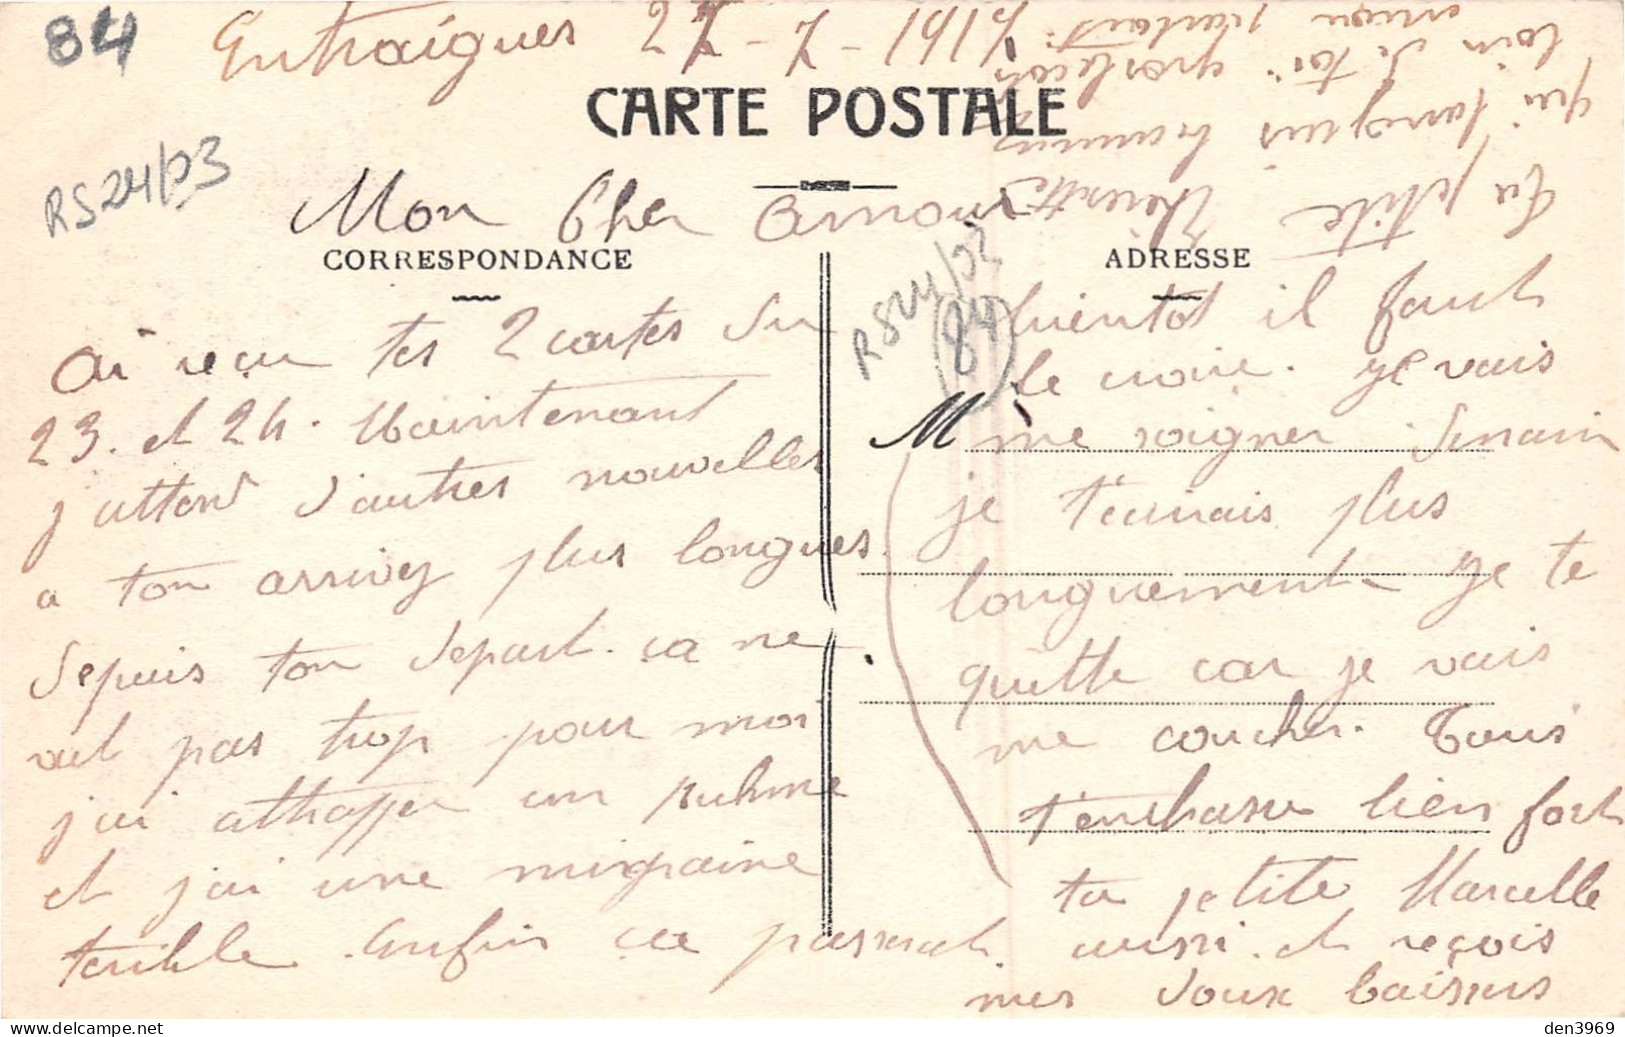 84
Entraigues 27-7-1917
CARTE POSTALE
RS24/03
Mon Cher Amour
CORRESPONDANCE
ai reçu tes 2 cartes du
23. et 24. Maintenant
j'attend d'autres nouvelles
a ton arrivez plus longues.
depuis ton depart. ça ne
vat pas trop pour moi
j'ai attrapper un ruhme
et j'ai une migraine
terrible. Enfin ça passerat
ADRESSE
RS24/02
84
bientot il faut
le croire. Je vais
M
me soigner. Demain
je t'ecrirais plus
longuement Je te
quitte car je vais
me coucher. Tous
t'embrasse bien fort
ta petite Marcelle
aussi. et reçois
mes doux baisers
Ta petite
qui toujours
loin de toi
den3969